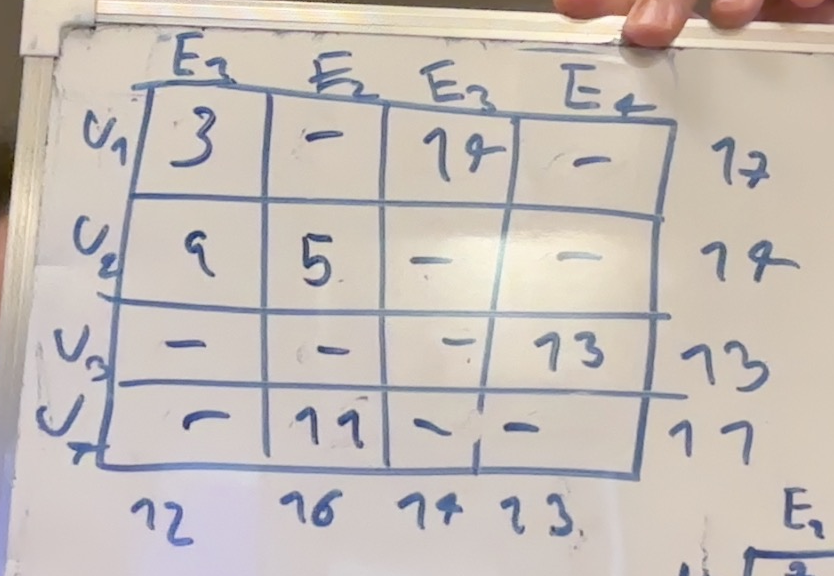 E₁ E₂ E₃ E₄
U₁ 3 - 14 - 17
U₂ 9 5 - - 14
U₃ - - - 13 13
U₄ - 11 - - 11
12 16 14 13
E₁